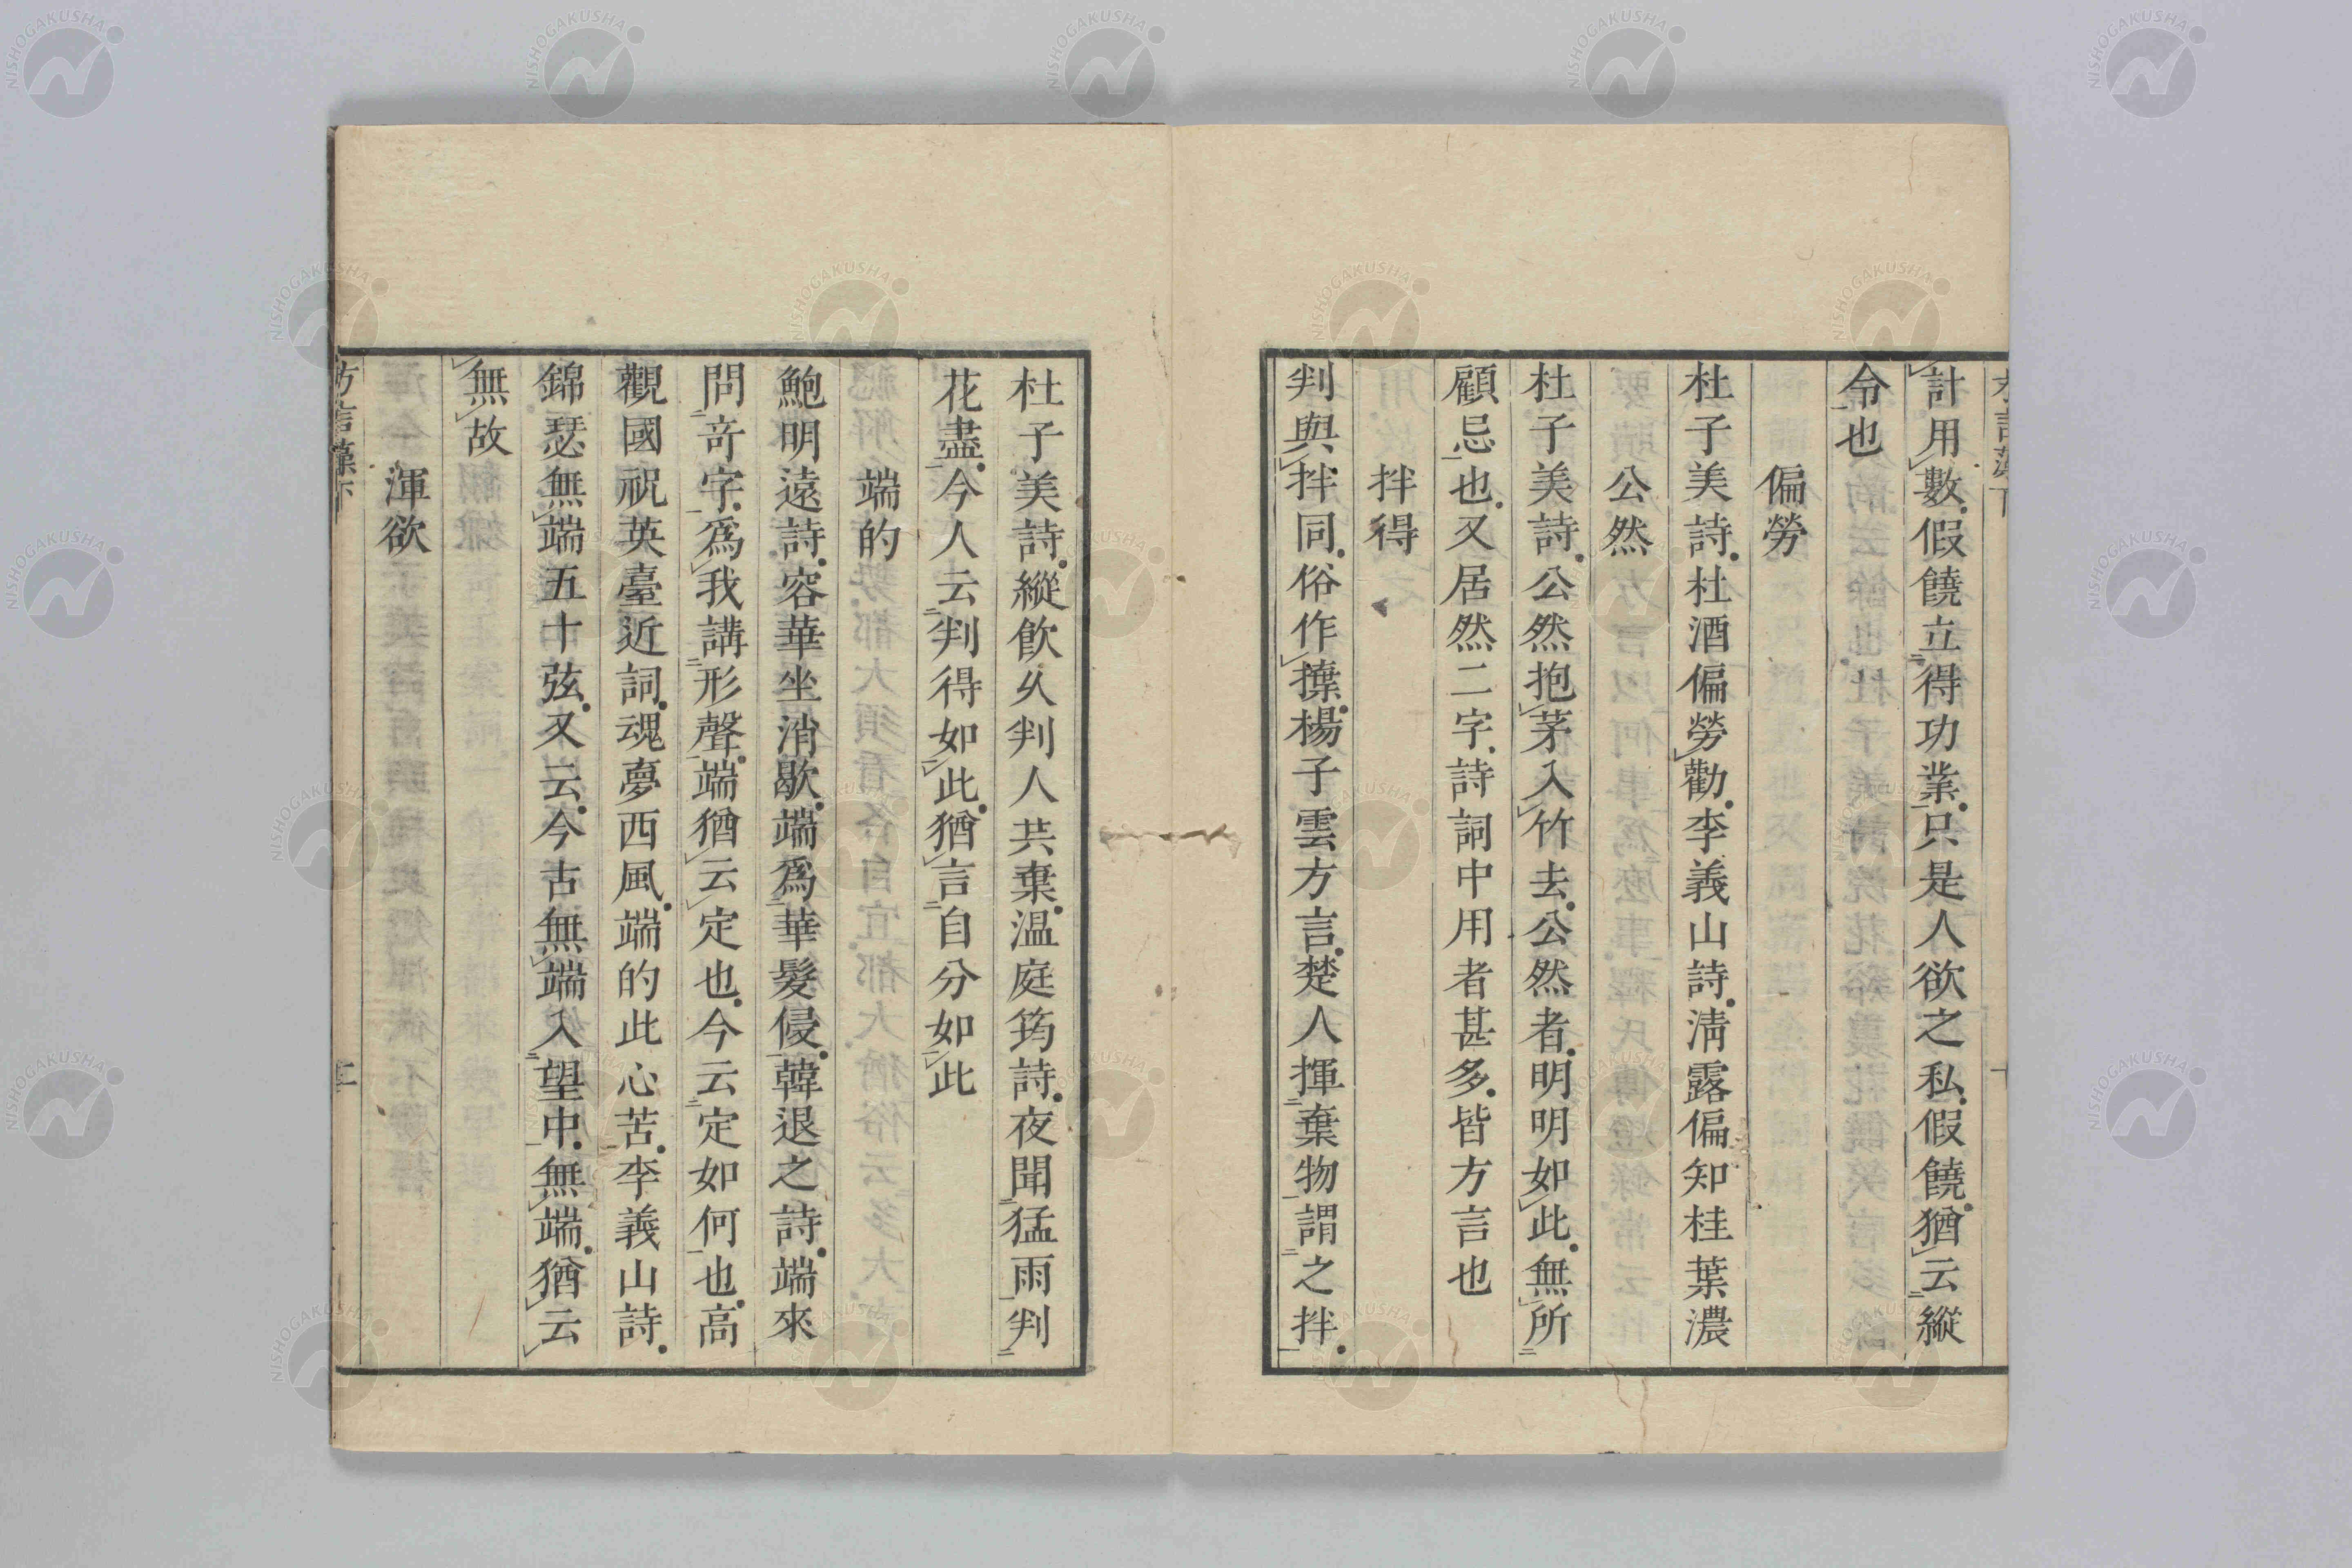 計用數假饒立得功業只是人欲之私假饒猶云縱
令也
偏勞
杜子美詩杜酒偏勞勸李義山詩淸露偏知桂葉濃
公然
杜子美詩公然抱茅入竹去公然者明明如此無所
顧忌也又居然二字詩詞中用者甚多皆方言也
拌得
判與拌同俗作𢬵楊子雲方言楚人揮棄物謂之拌
杜子美詩縱飮久判人共棄温庭筠詩夜聞猛雨判
花盡今人云判得如此猶言自分如此
端的
鮑明遠詩容華坐消歇端爲華髮侵韓退之詩端來
問奇字爲我講形聲端猶云定也今云定如何也高
觀國祝英臺近詞魂夢西風端的此心苦李義山詩
錦瑟無端五十弦又云今古無端入望中無端猶云
無故
渾欲
方言藻下
NISHOGAKUSHA